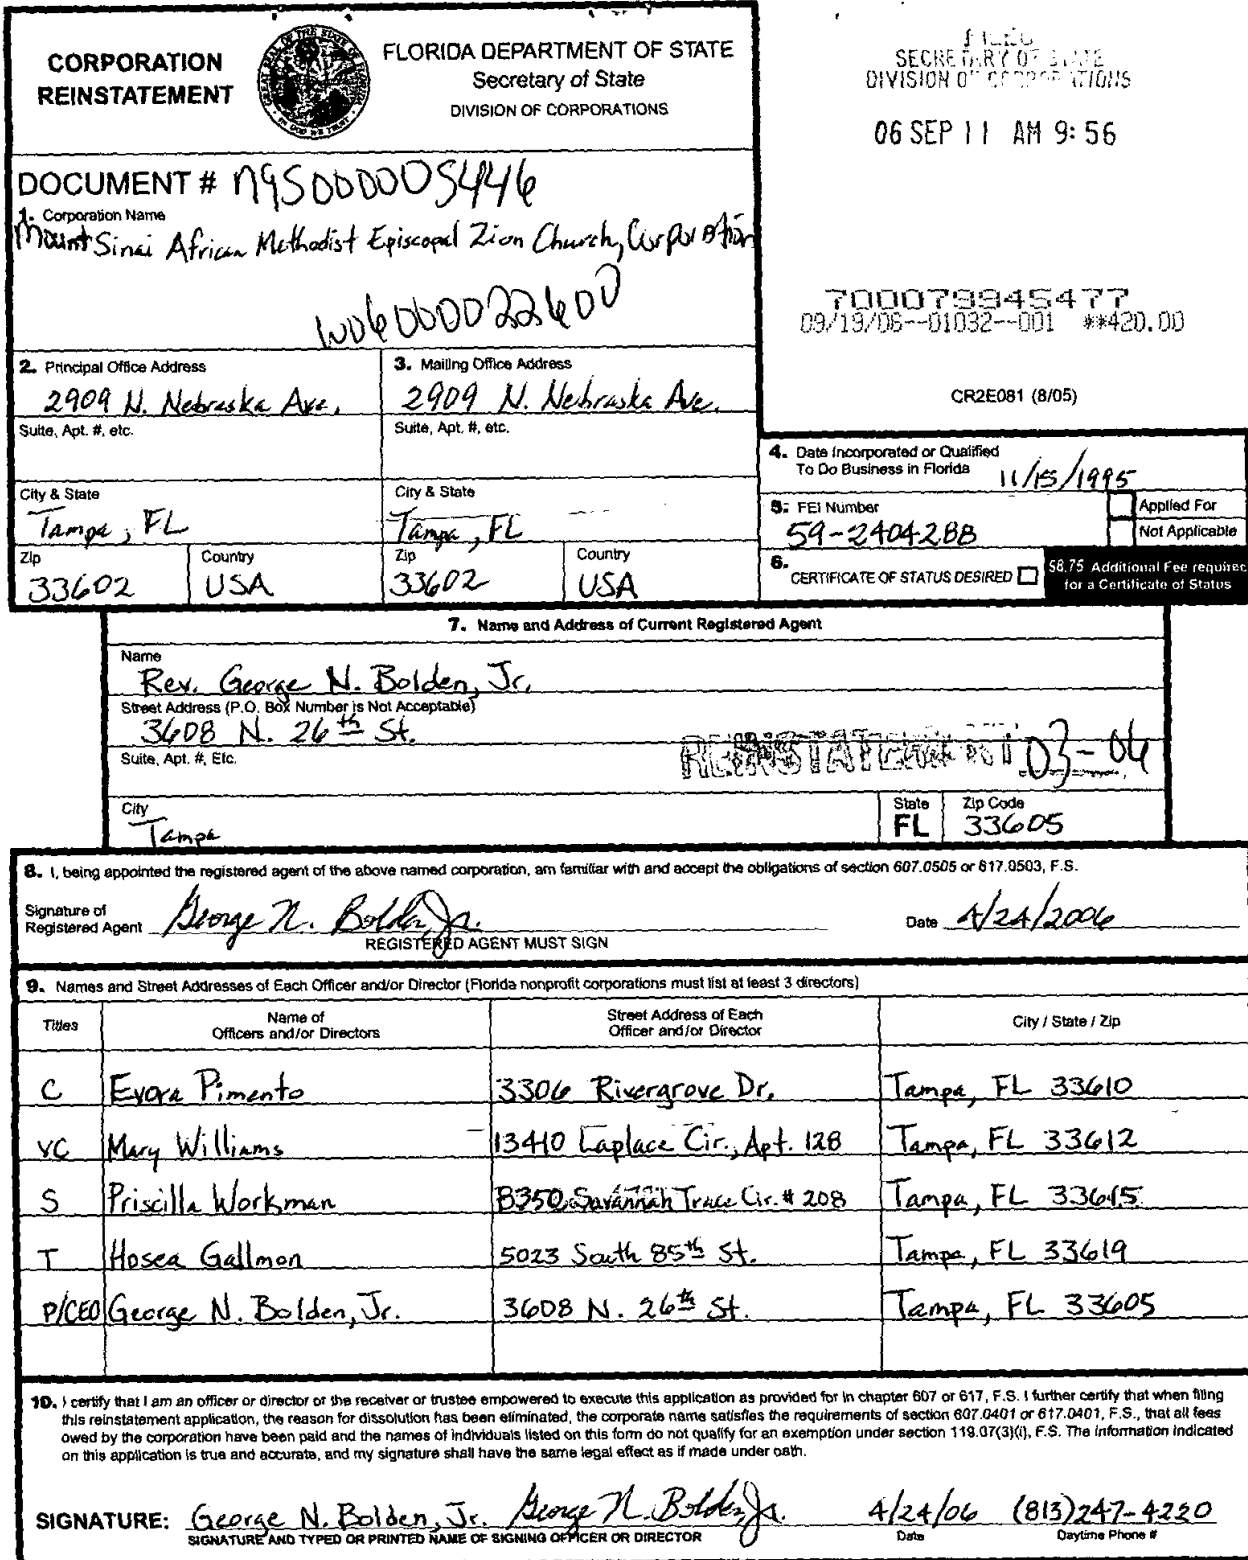 CORPORATION
REINSTATEMENT
FLORIDA DEPARTMENT OF STATE
Secretary of State
DIVISION OF CORPORATIONS
FILED
SECRETARY OF STATE
DIVISION OF CORPORATIONS
06 SEP 11 AM 9:56
DOCUMENT # N95000005446
1. Corporation Name
Mount Sinai African Methodist Episcopal Zion Church, Corporation
W06000022600
700079945477
09/19/06--01032--001 **420.00
2. Principal Office Address
2909 N. Nebraska Ave.
3. Mailing Office Address
2909 N. Nebraska Ave.
CR2E081 (8/05)
Suite, Apt. #, etc.
Suite, Apt. #, etc.
4. Date Incorporated or Qualified
To Do Business in Florida 11/15/1995
City & State
Tampa, FL
City & State
Tampa, FL
5. FEI Number
59-2404288
Applied For
Not Applicable
Zip
33602
Country
USA
Zip
33602
Country
USA
6. CERTIFICATE OF STATUS DESIRED
$8.75 Additional Fee required
for a Certificate of Status
7. Name and Address of Current Registered Agent
Name
Rev. George N. Bolden, Jr.
Street Address (P.O. Box Number is Not Acceptable)
3608 N. 26th St.
Suite, Apt. #, Etc.
REINSTATEMENT 03-06
City
Tampa
State
FL
Zip Code
33605
8. I, being appointed the registered agent of the above named corporation, am familiar with and accept the obligations of section 607.0505 or 617.0503, F.S.
Signature of
Registered Agent George N. Bolden, Jr.
Date 4/24/2006
REGISTERED AGENT MUST SIGN
9. Names and Street Addresses of Each Officer and/or Director (Florida nonprofit corporations must list at least 3 directors)
Titles
Name of
Officers and/or Directors
Street Address of Each
Officer and/or Director
City / State / Zip
C Evora Pimento 3306 Rivergrove Dr. Tampa, FL 33610
VC Mary Williams 13410 Laplace Cir., Apt. 128 Tampa, FL 33612
S Priscilla Workman 8350 Savannah Trace Cir. # 208 Tampa, FL 33615
T Hosea Gallmon 5023 South 85th St. Tampa, FL 33619
P/CEO George N. Bolden, Jr. 3608 N. 26th St. Tampa, FL 33605
10. I certify that I am an officer or director or the receiver or trustee empowered to execute this application as provided for in chapter 607 or 617, F.S. I further certify that when filing
this reinstatement application, the reason for dissolution has been eliminated, the corporate name satisfies the requirements of section 607.0401 or 617.0401, F.S., that all fees
owed by the corporation have been paid and the names of individuals listed on this form do not qualify for an exemption under section 119.07(3)(i), F.S. The information indicated
on this application is true and accurate, and my signature shall have the same legal effect as if made under oath.
SIGNATURE: George N. Bolden, Jr. George N. Bolden, Jr. 4/24/06 (813)247-4220
SIGNATURE AND TYPED OR PRINTED NAME OF SIGNING OFFICER OR DIRECTOR Date Daytime Phone #